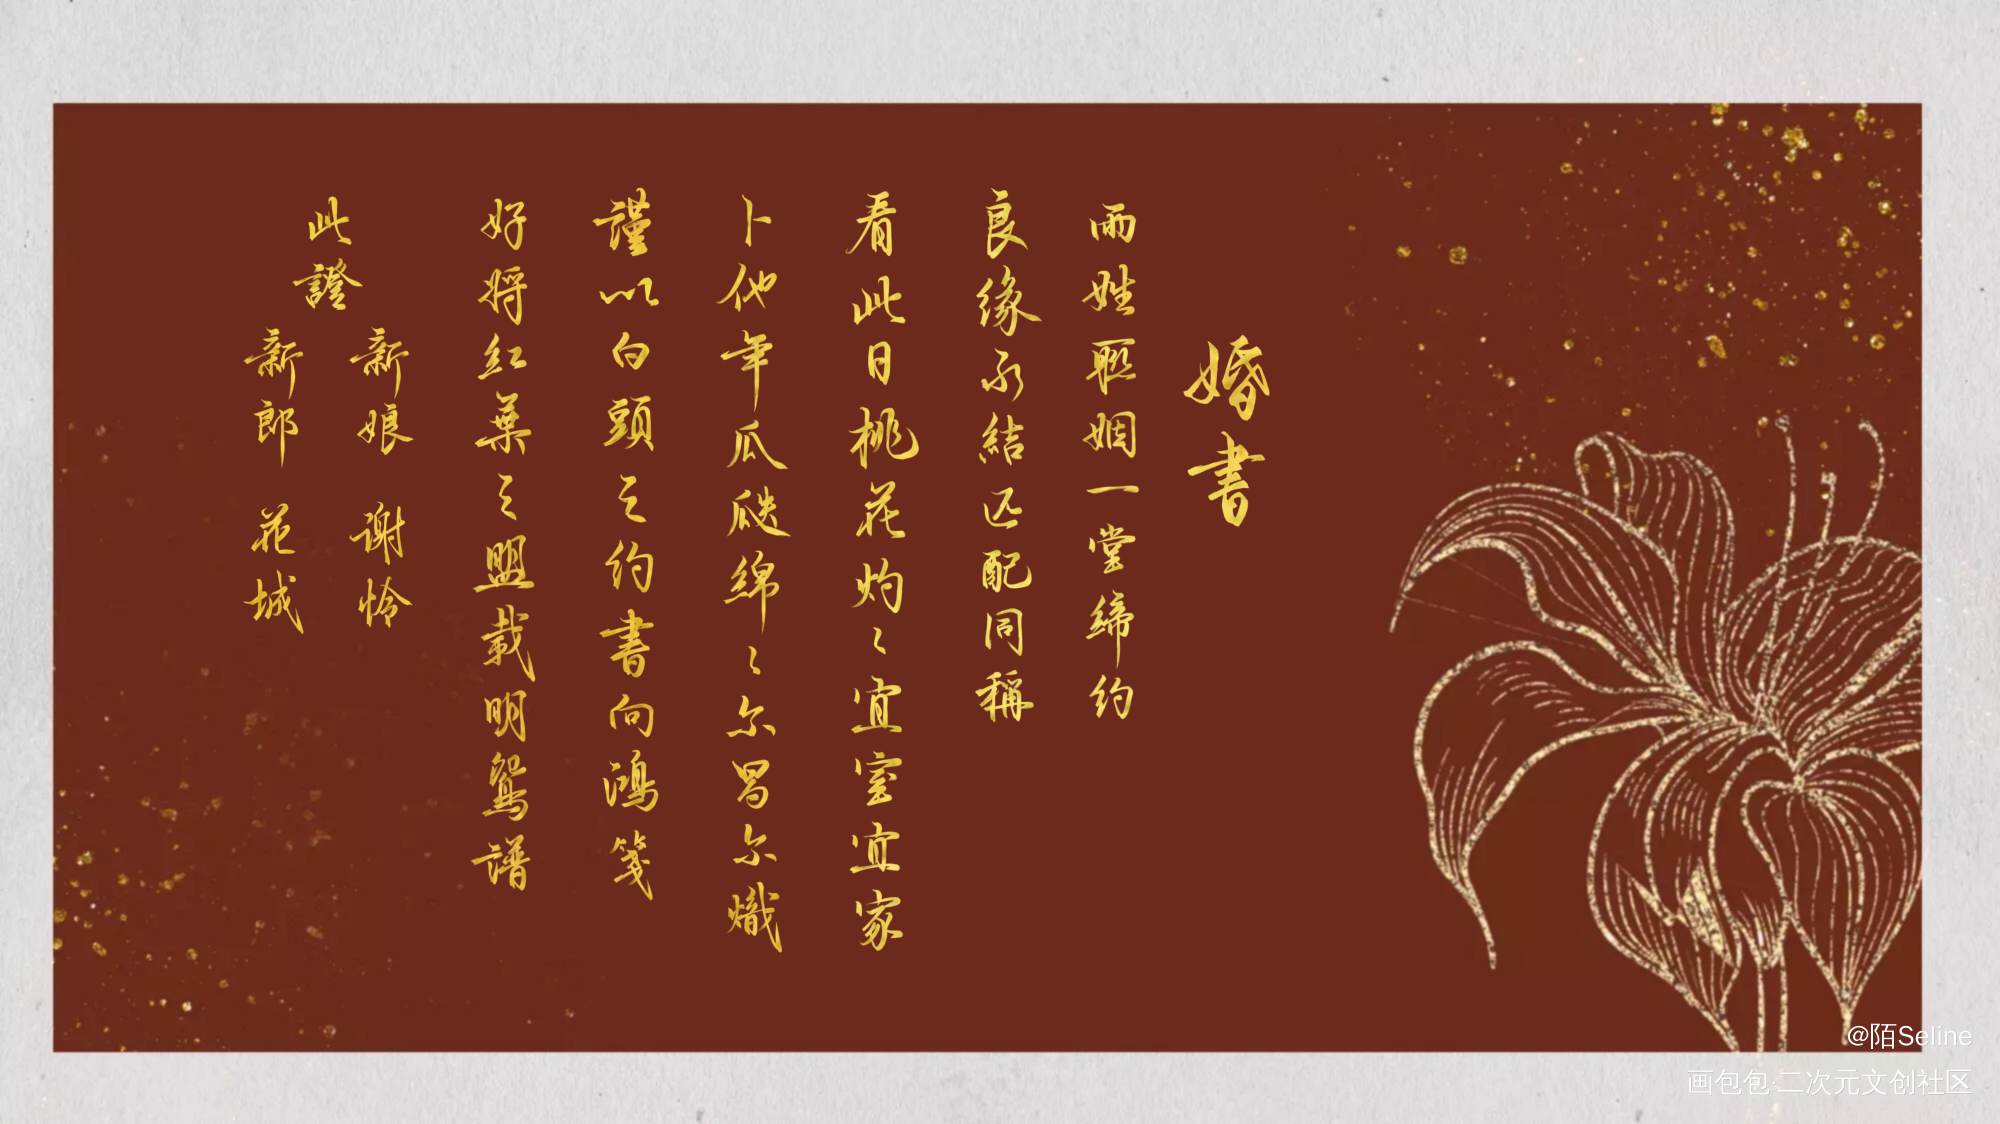 婚書
兩姓聯姻一堂締约
良缘永結匹配同稱
看此日桃花灼々宜室宜家
卜他年瓜瓞綿々尔昌尔熾
謹以白頭之约書向鴻箋
好将紅葉之盟载明鴛譜
此證
新娘 谢怜
新郎 花城
@陌Seline
画包包·二次元文创社区